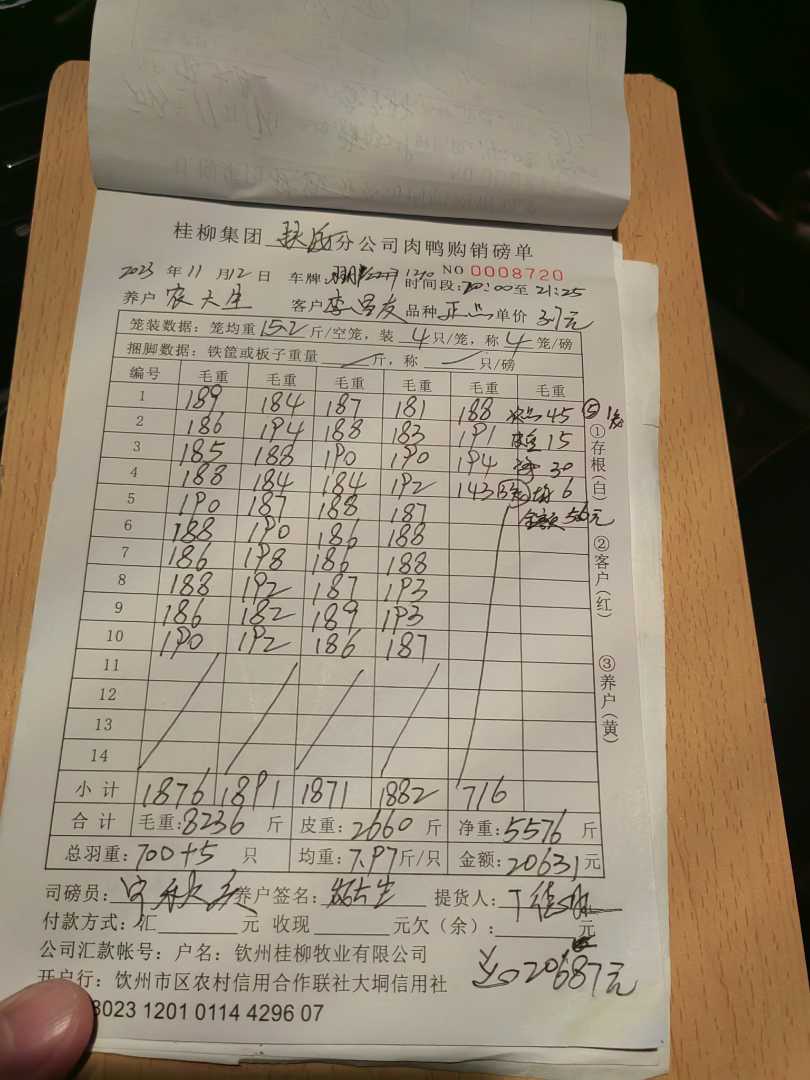 桂柳集团 分公司肉鸭购销磅单
NO 0008720
2023 年 11 月 12 日 车牌 时间段: 20:00 至 21:25
养户 农大生 客户 李昌友 品种 正 单价 3.7元
笼装数据: 笼均重 15.2 斤/空笼, 装 4 只/笼, 称 4 笼/磅
捆脚数据: 铁筐或板子重量 斤, 称 只/磅
编号 毛重 毛重 毛重 毛重 毛重 毛重
1 189 184 187 181 188 45 ⑤
2 186 194 188 183 191 15
3 185 188 190 190 194 30
4 188 184 184 192 143 6
5 190 187 188 187 56元
6 188 190 186 188
7 186 198 186 188
8 188 192 187 193
9 186 182 189 193
10 190 192 186 187
11
12
13
14
小计 1876 1891 1871 1882 716
合计 毛重: 8236 斤 皮重: 2660 斤 净重: 5576 斤
总羽重: 700+5 只 均重: 7.97 斤/只 金额: 20631 元
司磅员: 养户签名: 提货人:
付款方式: 汇 元 收现 元欠(余): 元
公司汇款帐号: 户名: 钦州桂柳牧业有限公司
开户行: 钦州市区农村信用合作联社大垌信用社
8023 1201 0114 4296 07
20687元
①存根(白)
②客户(红)
③养户(黄)